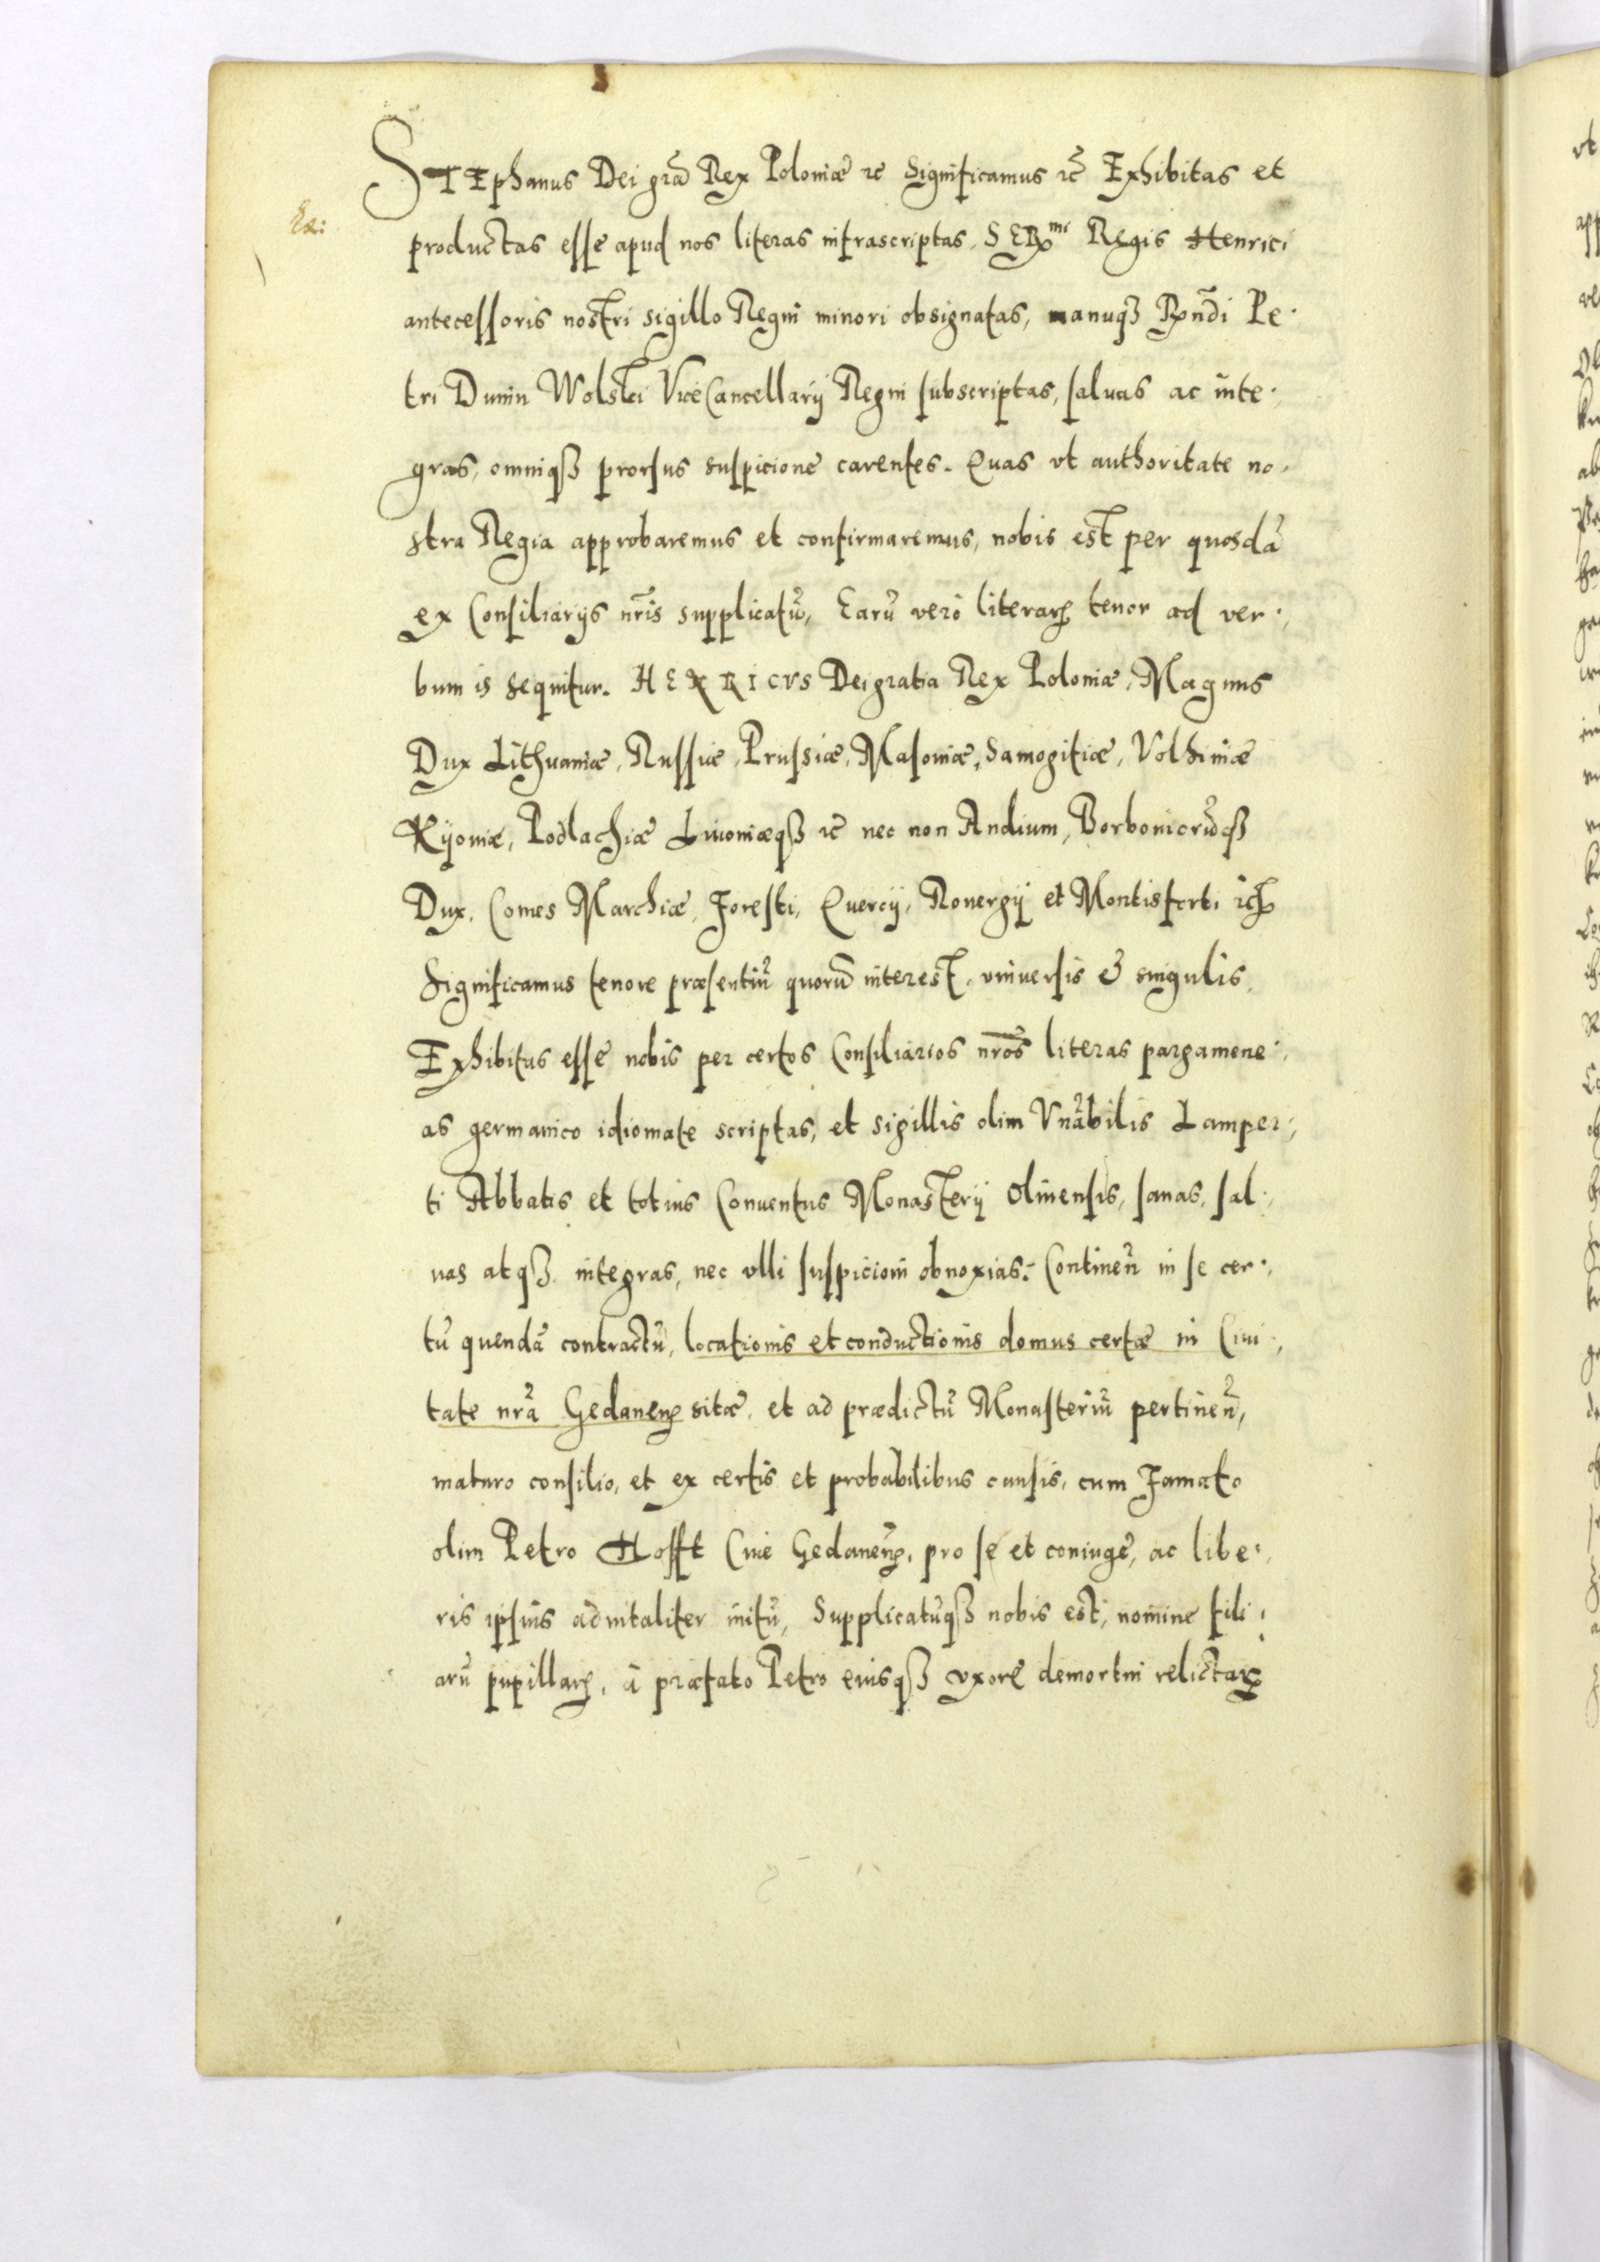 STEphanus Dei grã Rex Poloniæ ꝛc Significamus ꝛc̃ Exhibitas et
productas esse apud nos literas infrascriptas, SERmi Regis Henrici
antecessoris nostri sigillo Regni minori obsignatas, manuqꝫ Rndi Pe-
tri Dunin Wolski ViceCancellarij Regni subscriptas, saluas ac inte-
gras, omniqꝫ prorsus suspicione carentes. Quas vt authoritate no-
stra Regia approbaremus et confirmaremus, nobis est per quosdã
ex Consiliarijs nr̃is supplicatũ, Earũ vero literarꝝ tenor ad ver-
bum is sequitur. HENRICVS Dei gratia Rex Poloniæ, Magnus
Dux Lithuaniæ, Russiæ, Prussiæ, Masoniæ, Samogitiæ, Volhiniæ
Kijoniæ, Podlachiæ Liuoniæqꝫ ꝛc̃ nec non Andium, Borboniorũqꝫ
Dux, Comes Marchiæ, Foresti, Quercij, Rouergij et Montisforti
Significamus tenore præsentiũ quorũ interest, vniuersis & singulis,
Exhibitas esse nobis per certos Consiliarios nr̃os literas pargamene-
as germanico idiomate scriptas, et sigillis olim Vnãbilis Lamper-
ti Abbatis et totius Conuentus Monasterij Oliuensis, sanas, sal-
uas atqꝫ integras, nec vlli suspicioni obnoxias: Continen̄ in se cer-
tũ quendã contractũ, locationis et conductionis domus certæ in Ciui-
tate nrã Gedanenꝫ sitæ, et ad prædictũ Monasteriũ pertinen̄,
maturo consilio, et ex certis et probabilibus causis, cum Famato
olim Petro Hofft Ciue Gedanenꝫ, pro se et coniuge, ac libe-
ris ipsius aduitaliter initũ, Supplicatũqꝫ nobis est, nomine fili-
arũ pupillarꝝ, à præfato Petro eiusqꝫ vxore demortui relictarꝝ